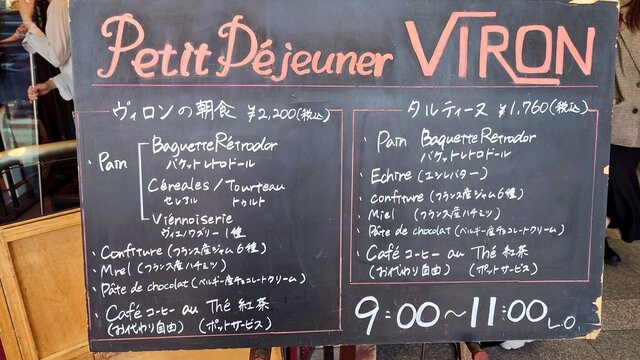 Petit Déjeuner VIRON
ヴィロンの朝食 ¥2,200(税込)
Pain
Baguette Rétrodor
バケットレトロドール
Céreales / Tourteau
セレアル トゥルト
Viénnoiserie
ヴィエノワズリー 1種
・Confiture (フランス産ジャム6種)
・Miel (フランス産ハチミツ)
・Pâte de chocolat (ベルギー産チョコレートクリーム)
・Café コーヒー au Thé 紅茶
(おかわり自由) (ポットサービス)
タルティーヌ ¥1,760(税込)
・Pain Baguette Rétrodor
バケットレトロドール
・Echire (エシレバター)
・confiture (フランス産ジャム6種)
・Miel (フランス産ハチミツ)
・Pâte de chocolat (ベルギー産チョコレートクリーム)
・Café コーヒー au Thé 紅茶
(お代わり自由) (ポットサービス)
9:00～11:00 L.O